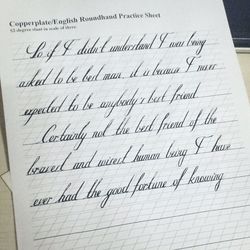 Copperplate/English Roundhand Practice Sheet
52 degree slant in scale of three
So if I didn't understand I was being
asked to be best man, it is because I never
expected to be anybody's best friend.
Certainly not the best friend of the
bravest and wisest human being I have
ever had the good fortune of knowing